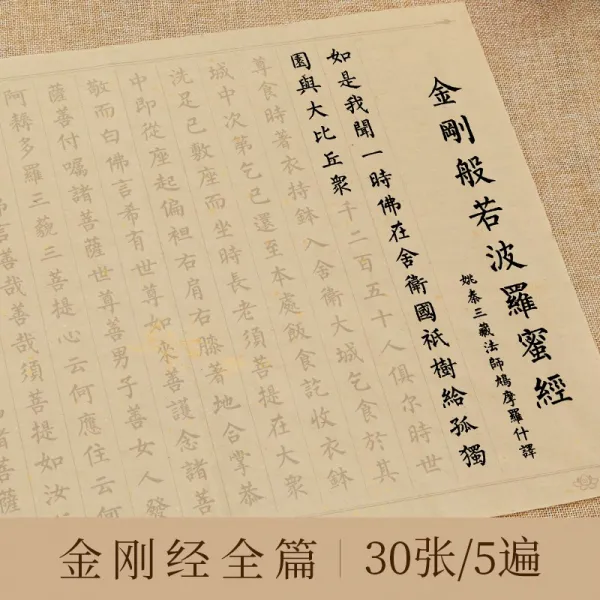 金剛般若波羅蜜經
姚秦三藏法師鳩摩羅什譯
如是我聞一時佛在舍衛國祇樹給孤獨
園與大比丘衆千二百五十人俱尔時世
尊食時著衣持鉢入舍衛大城乞食於其
城中次第乞已還至本處飯食訖收衣鉢
洗足已敷座而坐時長老須菩提在大衆
中即從座起偏袒右肩右膝著地合掌恭
敬而白佛言希有世尊如來善護念諸菩
薩善付囑諸菩薩世尊善男子善女人發
阿耨多羅三藐三菩提心云何應住云何
言善哉善哉須菩提如汝
諸菩薩
金刚经全篇 30张/5遍